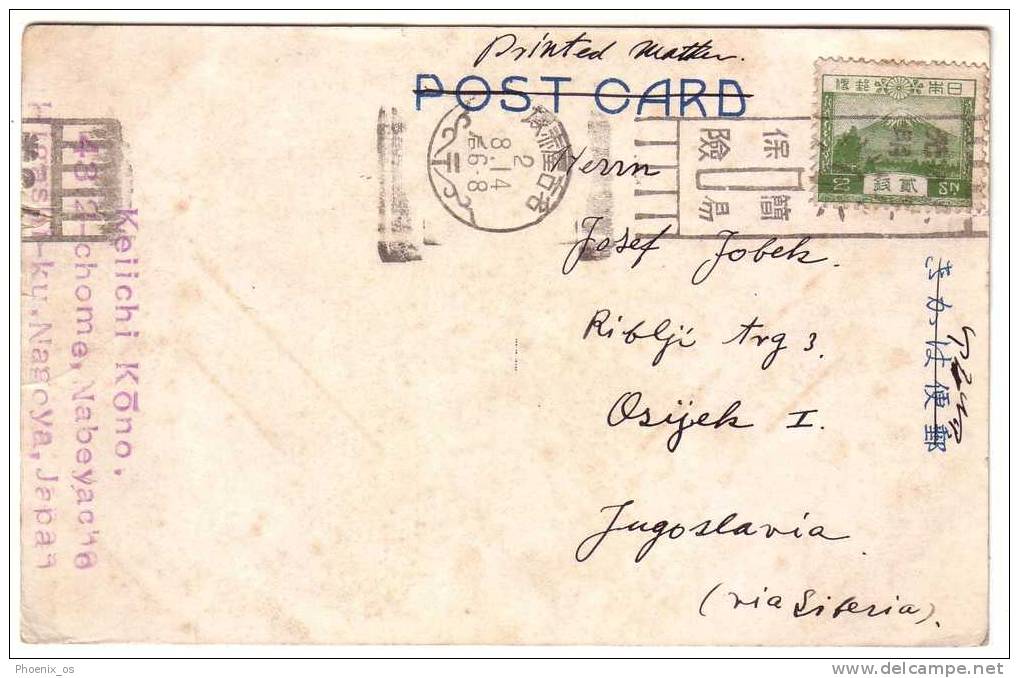 Printed Matter.
POST CARD
日本郵便
貳銭
2
8.14
后6-8
保險
簡易
Herrn
Josef Jobek.
Riblji trg 3.
Osijek I.
Jugoslavia
(via Siberia).
きかは便郵
Keiichi Kōno,
chome, Nabeyacho
ku, Nagoya, Japan
Phoenix_os
delcampe.net